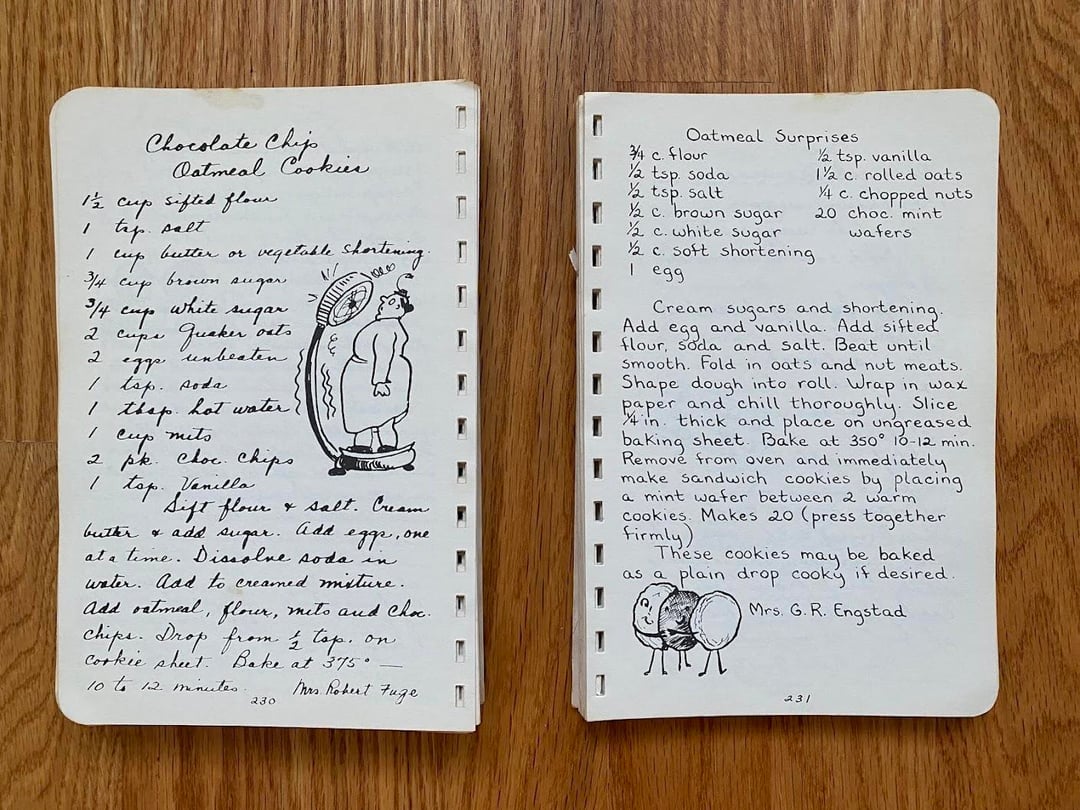 Chocolate Chip
Oatmeal Cookies
1½ cup sifted flour
1 tsp. salt
1 cup butter or vegetable shortening.
3/4 cup brown sugar
3/4 cup white sugar
2 cups Quaker oats
2 eggs unbeaten
1 tsp. soda
1 tbsp. hot water
1 cup nuts
2 pk. Choc. Chips
1 tsp. Vanilla
Sift flour & salt. Cream
butter & add sugar. Add eggs, one
at a time. Dissolve soda in
water. Add to creamed mixture.
Add oatmeal, flour, nuts and choc.
chips. Drop from ½ tsp. on
cookie sheet. Bake at 375° —
10 to 12 minutes. Mrs Robert Fuge
230
Oatmeal Surprises
3/4 c. flour
½ tsp. soda
½ tsp. salt
½ c. brown sugar
½ c. white sugar
½ c. soft shortening
1 egg
½ tsp. vanilla
1½ c. rolled oats
¼ c. chopped nuts
20 choc. mint
wafers
Cream sugars and shortening.
Add egg and vanilla. Add sifted
flour, soda and salt. Beat until
smooth. Fold in oats and nut meats.
Shape dough into roll. Wrap in wax
paper and chill thoroughly. Slice
¼ in. thick and place on ungreased
baking sheet. Bake at 350° 10-12 min.
Remove from oven and immediately
make sandwich cookies by placing
a mint wafer between 2 warm
cookies. Makes 20 (press together
firmly)
These cookies may be baked
as a plain drop cooky if desired.
Mrs. G. R. Engstad
231